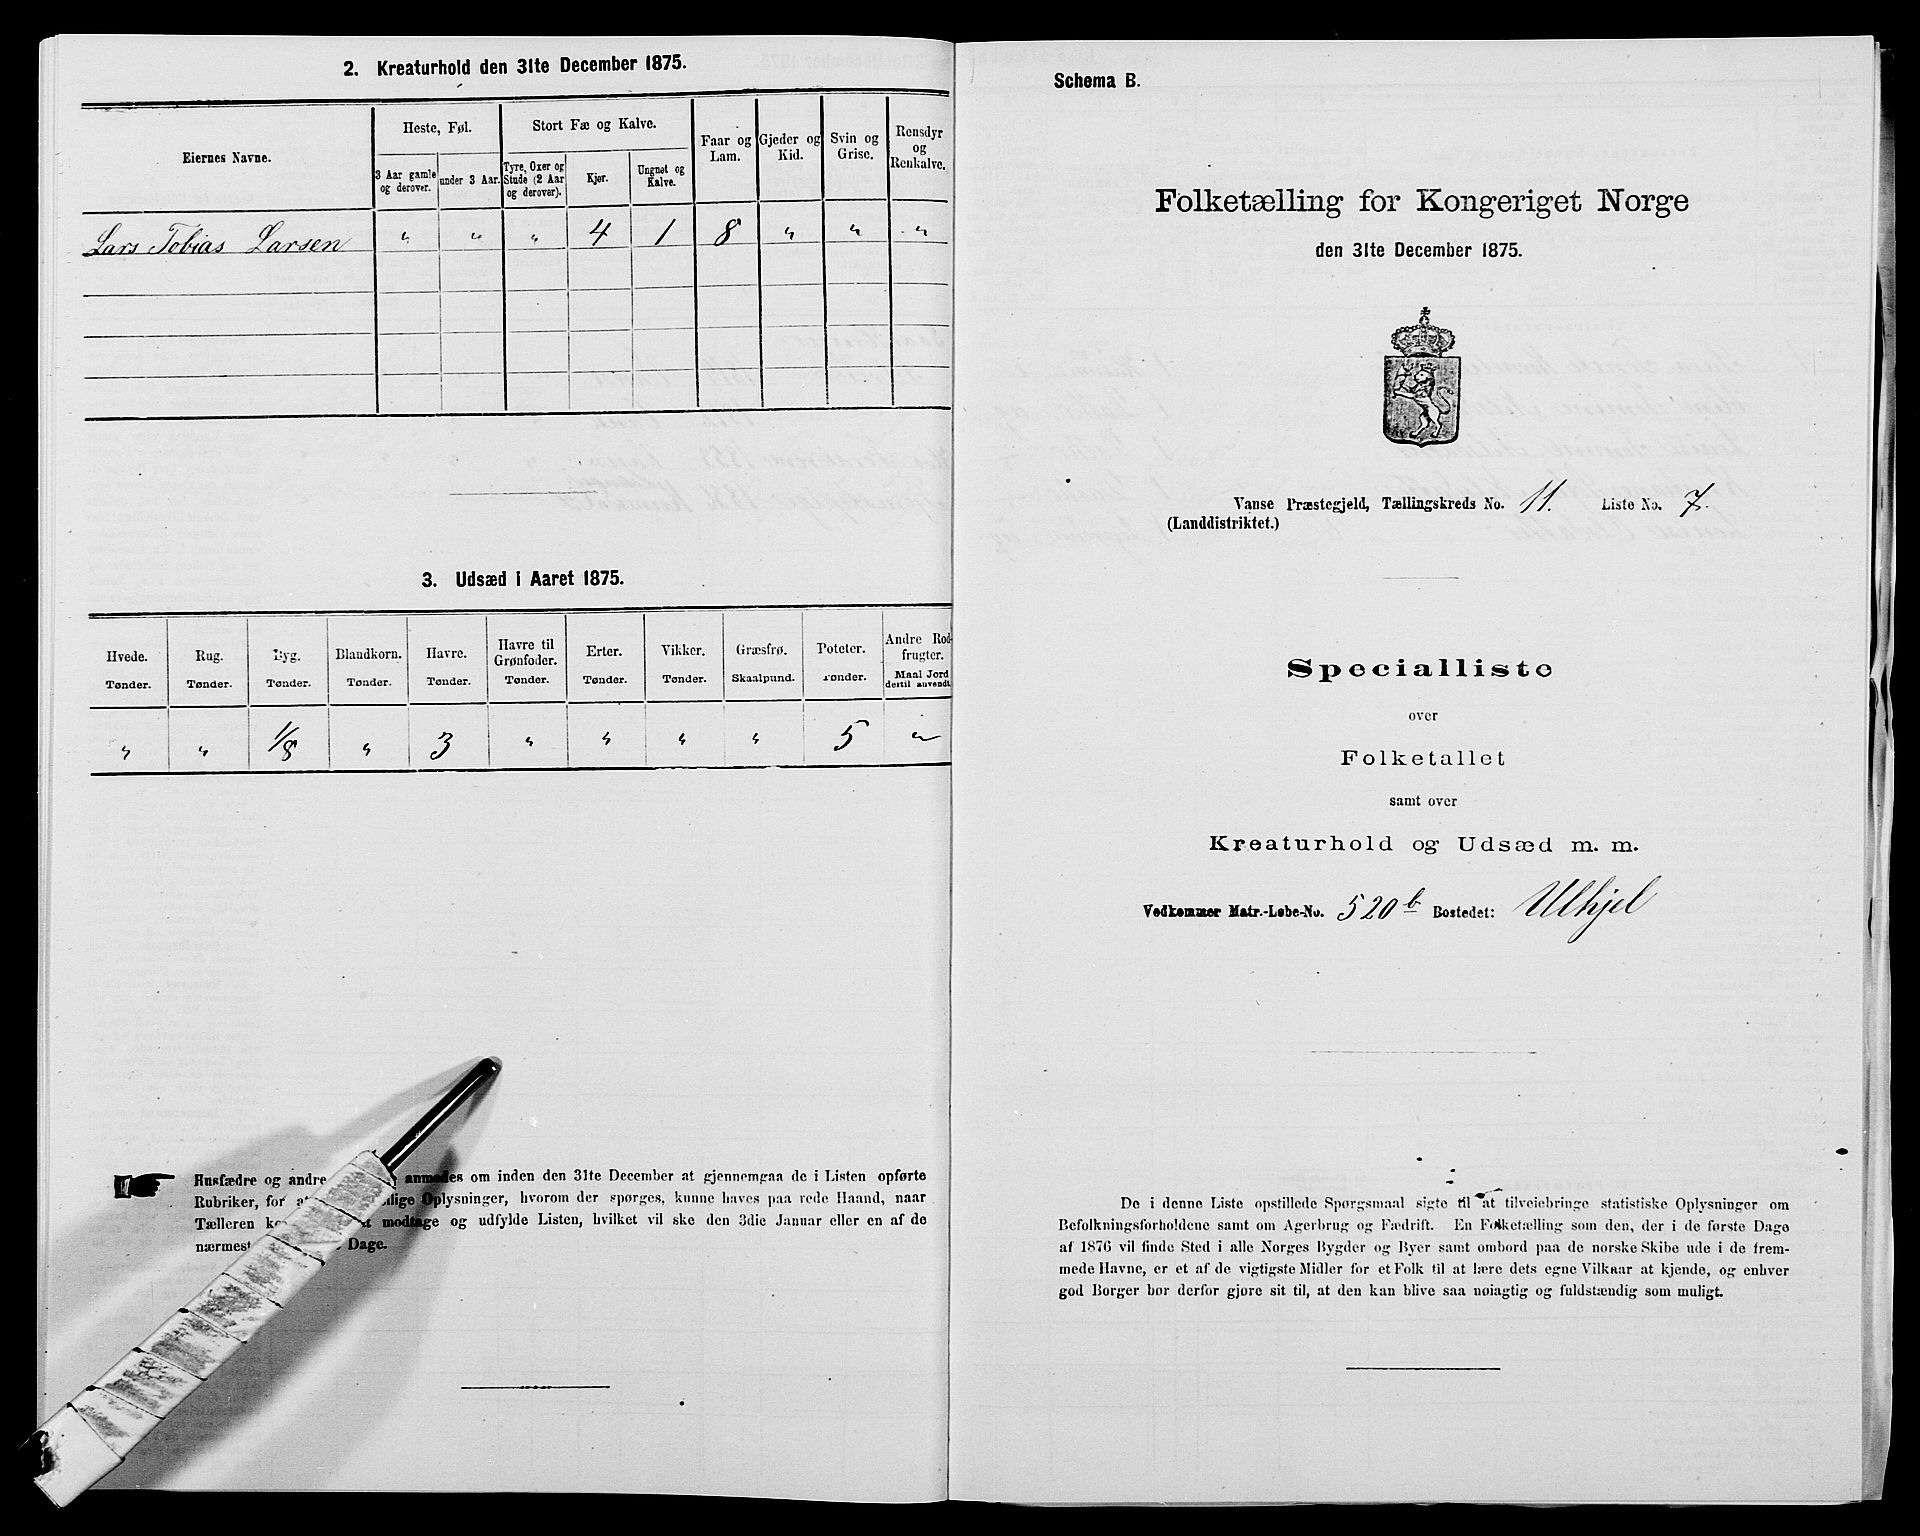 2. Kreaturhold den 31te December 1875.
Eiernes Navne.
Heste, Føl.
Stort Fæ og Kalve.
Faar og Lam.
Gjeder og Kid.
Svin og Grise.
Rensdyr og Renkalve.
3 Aar gamle og derover.
under 3 Aar.
Tyre, Oxer og Stude (2 Aar og derover).
Kjør.
Ungnøt og Kalve.
Lars Tobias Larsen " " " 4 1 8 " " "
3. Udsæd i Aaret 1875.
Hvede. Rug. Byg. Blandkorn. Havre. Havre til Grønfoder. Erter. Vikker. Græsfrø. Poteter. Andre Rodfrugter.
Tønder. Tønder. Tønder. Tønder. Tønder. Tønder. Tønder. Tønder. Skaalpund. Tønder. Maal Jord dertil anvendt.
" " 1/8 " 3 " " " " 5 "
Husfædre og andre anmodes om inden den 31te December at gjennemgaa de i Listen opførte
Rubriker, for at Oplysninger, hvorom der spørges, kunne haves paa rede Haand, naar
Tælleren modtage og udfylde Listen, hvilket vil ske den 3die Januar eller en af de
nærmest Dage.
Schema B.
Folketælling for Kongeriget Norge
den 31te December 1875.
Vanse Præstegjeld, Tællingskreds No. 11. Liste No. 7.
(Landdistriktet.)
Specialliste
over
Folketallet
samt over
Kreaturhold og Udsæd m. m.
Vedkommer Matr.-Løbe-No. 520 b Bostedet: Ulhjel
De i denne Liste opstillede Spørgsmaal sigte til at tilveiebringe statistiske Oplysninger om
Befolkningsforholdene samt om Agerbrug og Fædrift. En Folketælling som den, der i de første Dage
af 1876 vil finde Sted i alle Norges Bygder og Byer samt ombord paa de norske Skibe ude i de frem-
mede Havne, er et af de vigtigste Midler for et Folk til at lære dets egne Vilkaar at kjende, og enhver
god Borger bør derfor gjøre sit til, at den kan blive saa nøiagtig og fuldstændig som muligt.